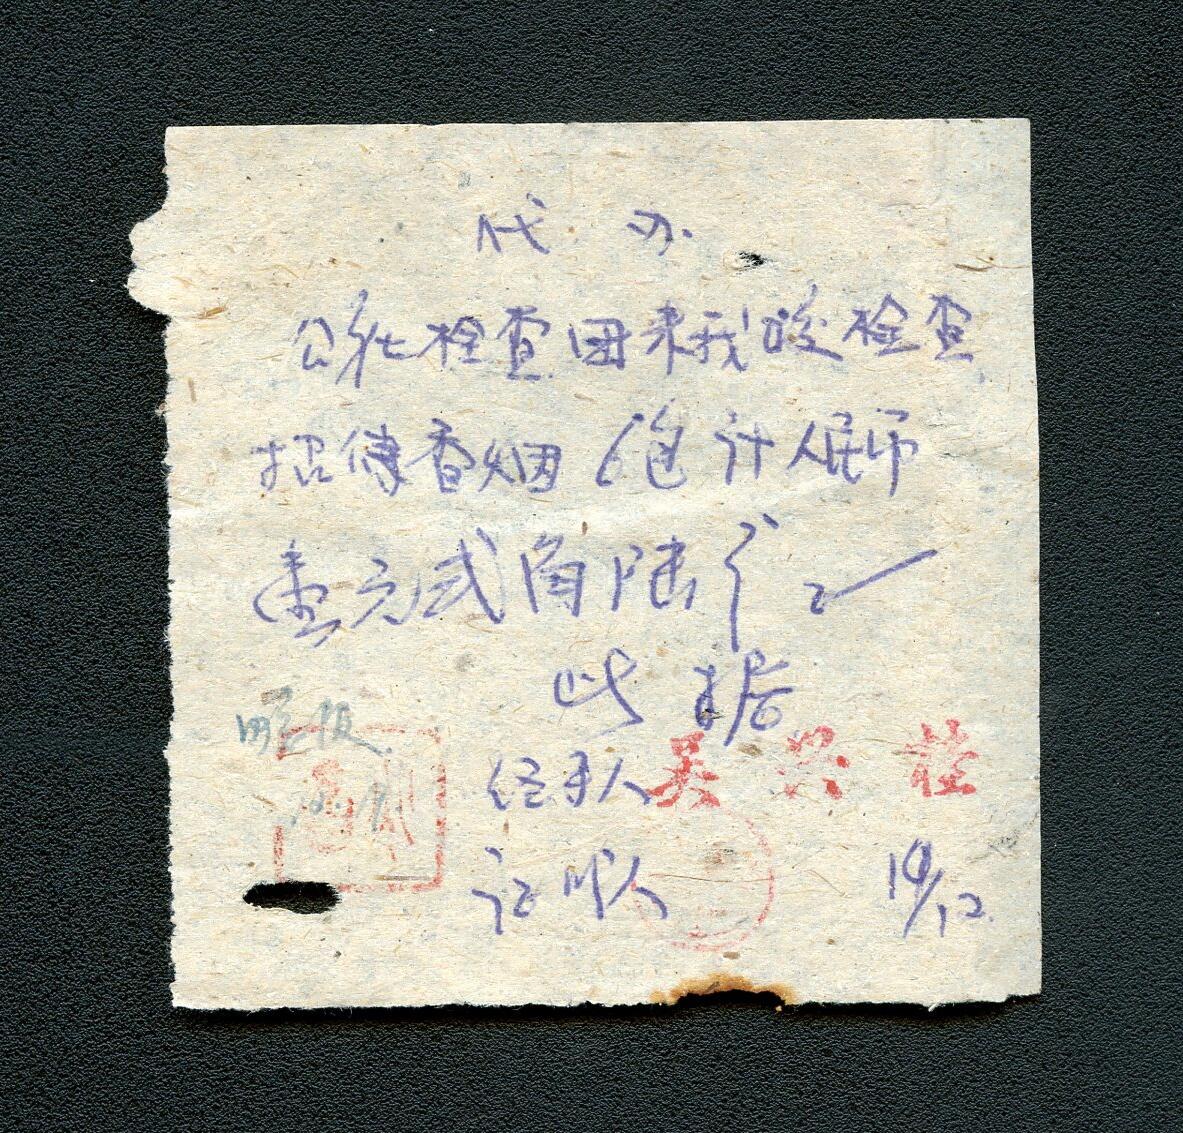 代办
公社检查团来我校检查
招待香烟6包计人民币
壹元弍角陆分
此据
经手人 吴兴桂
证明人
19/12